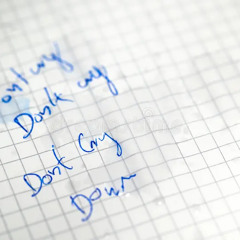 ont cry
Dont cry
Don't Cry
Down